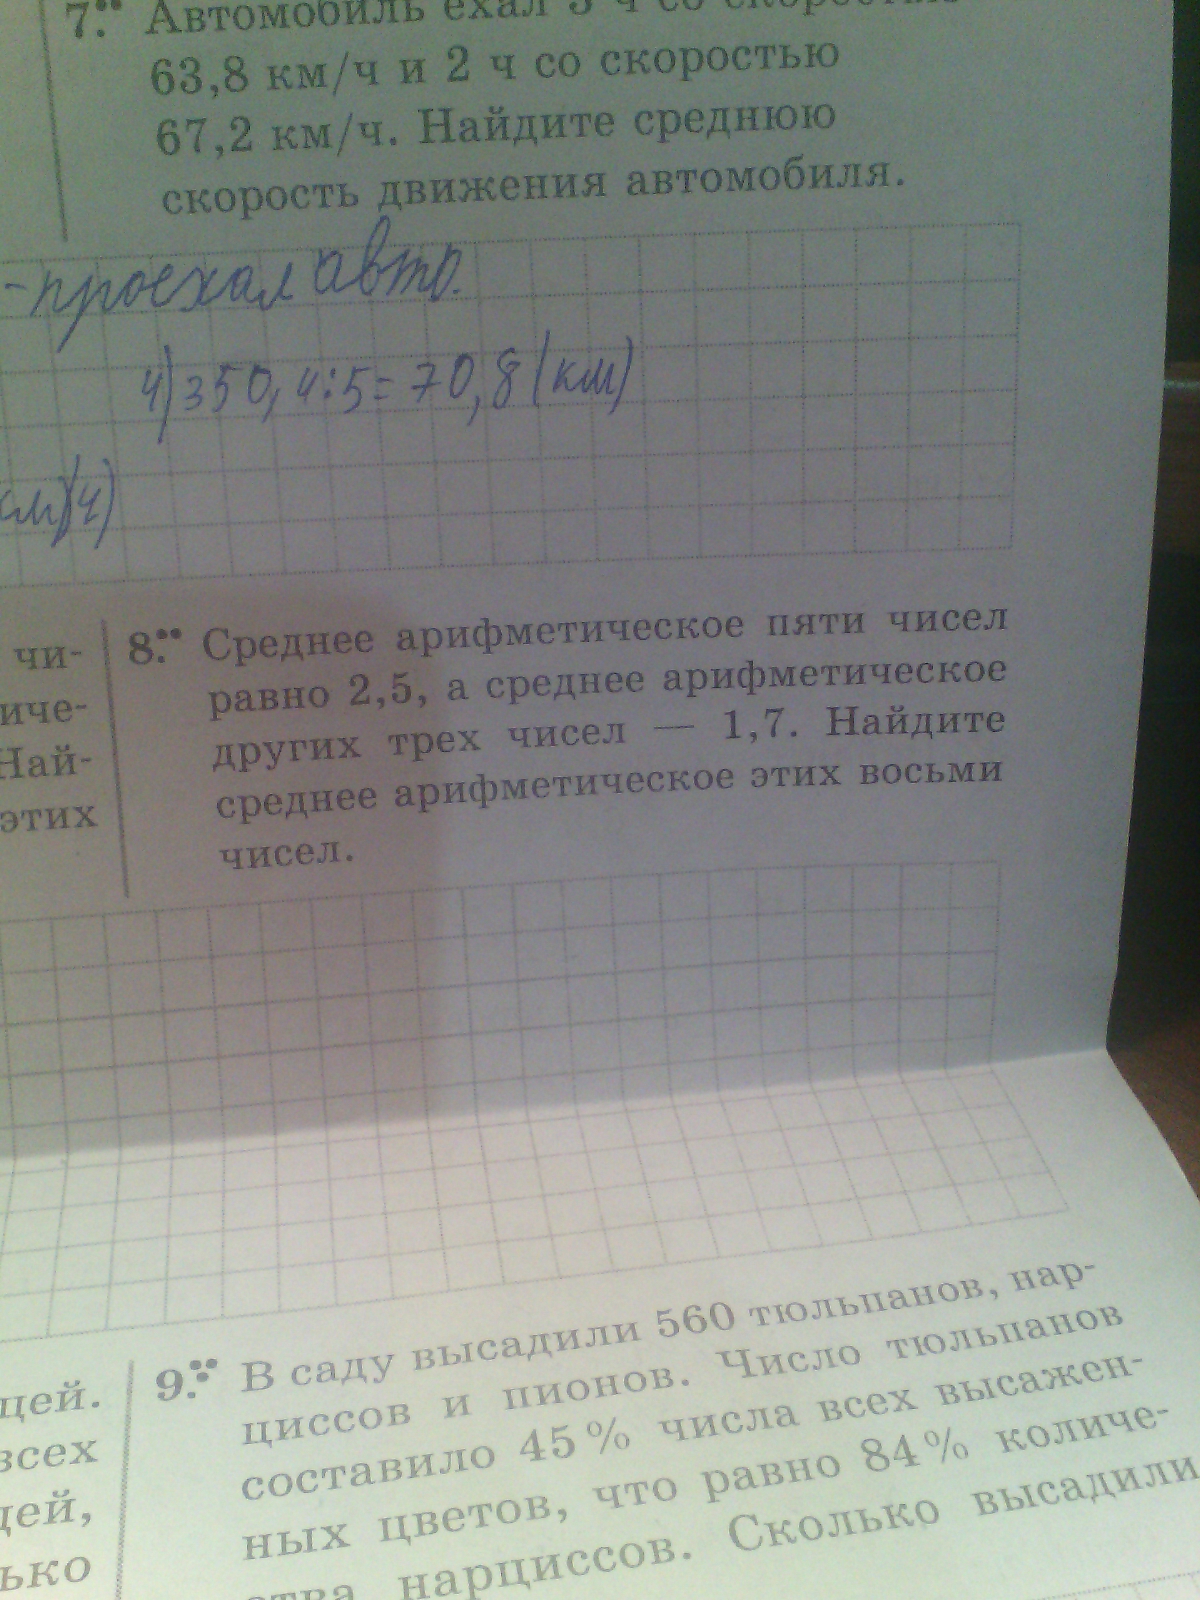 7. Автомобиль ехал 3 ч со скоростью
63,8 км/ч и 2 ч со скоростью
67,2 км/ч. Найдите среднюю
скорость движения автомобиля.
-проехал авто.
4) 350,4:5=70,8(км)
км)(ч)
чи-
иче-
Най-
этих
8. Среднее арифметическое пяти чисел
равно 2,5, а среднее арифметическое
других трех чисел — 1,7. Найдите
среднее арифметическое этих восьми
чисел.
цей.
всех
цей,
ько
9. В саду высадили 560 тюльпанов, нар-
циссов и пионов. Число тюльпанов
составило 45 % числа всех высажен-
ных цветов, что равно 84 % количе-
ства нарциссов. Сколько высадили